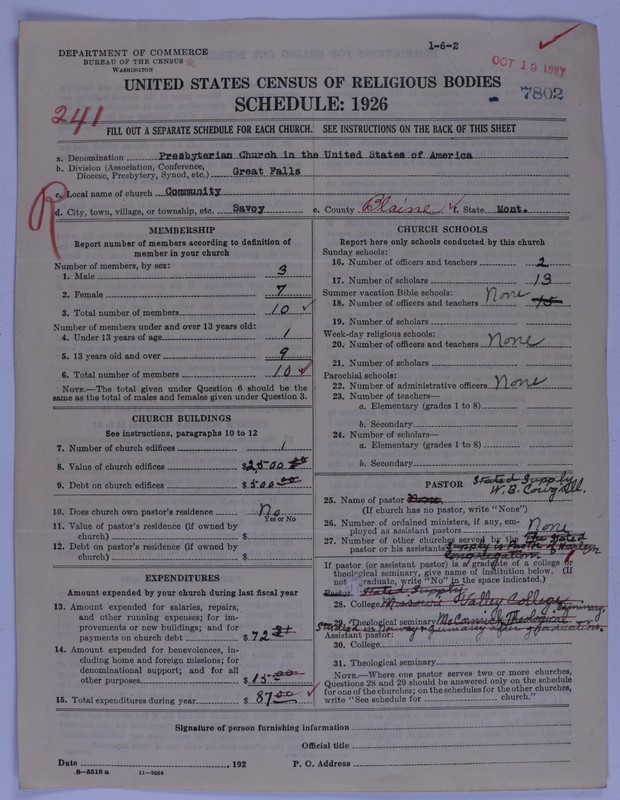 DEPARTMENT OF COMMERCE
BUREAU OF THE CENSUS
WASHINGTON
1-6-2
OCT 19 1927
7802
UNITED STATES CENSUS OF RELIGIOUS BODIES
SCHEDULE: 1926
241
FILL OUT A SEPARATE SCHEDULE FOR EACH CHURCH. SEE INSTRUCTIONS ON THE BACK OF THIS SHEET
a. Denomination Presbyterian Church in the United States of America
b. Division (Association, Conference, Diocese, Presbytery, Synod, etc.) Great Falls
R
c. Local name of church Community
d. City, town, village, or township, etc. Savoy e. County Blaine f. State Mont.
MEMBERSHIP
Report number of members according to definition of
member in your church
Number of members, by sex:
1. Male 3
2. Female 7
3. Total number of members 10
Number of members under and over 13 years old:
4. Under 13 years of age 1
5. 13 years old and over 9
6. Total number of members 10
NOTE.—The total given under Question 6 should be the
same as the total of males and females given under Question 3.
CHURCH BUILDINGS
See instructions, paragraphs 10 to 12
7. Number of church edifices 1
8. Value of church edifices $2,500 00
9. Debt on church edifices $500 00
10. Does church own pastor's residence No
Yes or No
11. Value of pastor's residence (if owned by
church) $
12. Debt on pastor's residence (if owned by
church) $
EXPENDITURES
Amount expended by your church during last fiscal year
13. Amount expended for salaries, repairs,
and other running expenses; for im-
provements or new buildings; and for
payments on church debt $72
14. Amount expended for benevolences, in-
cluding home and foreign missions; for
denominational support; and for all
other purposes $15 00
15. Total expenditures during year $87 00
CHURCH SCHOOLS
Report here only schools conducted by this church
Sunday schools:
16. Number of officers and teachers 2
17. Number of scholars 13
Summer vacation Bible schools:
18. Number of officers and teachers None 15
19. Number of scholars
Week-day religious schools:
20. Number of officers and teachers None
21. Number of scholars
Parochial schools:
22. Number of administrative officers None
23. Number of teachers—
a. Elementary (grades 1 to 8)
b. Secondary
24. Number of scholars—
a. Elementary (grades 1 to 8)
b. Secondary
PASTOR Stated Supply
W. B. Cowgill.
25. Name of pastor None
(If church has no pastor, write "None")
26. Number of ordained ministers, if any, em-
ployed as assistant pastors None
27. Number of other churches served by the The Stated
pastor or his assistants Supply is Pastor of Harlem
Congregation
If pastor (or assistant pastor) is a graduate of a college or
theological seminary, give name of institution below. (If
not a graduate, write "No" in the space indicated.)
Pastor: Stated Supply
28. College Missouri Valley College
29. Theological seminary McCormick Theological Seminary.
Studied in Norway & Germany after graduation.
Assistant pastor:
30. College
31. Theological seminary
NOTE.—Where one pastor serves two or more churches,
Questions 28 and 29 should be answered only on the schedule
for one of the churches; on the schedules for the other churches,
write "See schedule for church."
Signature of person furnishing information
Official title
Date , 192 P. O. Address
8-5518 a 11-9054